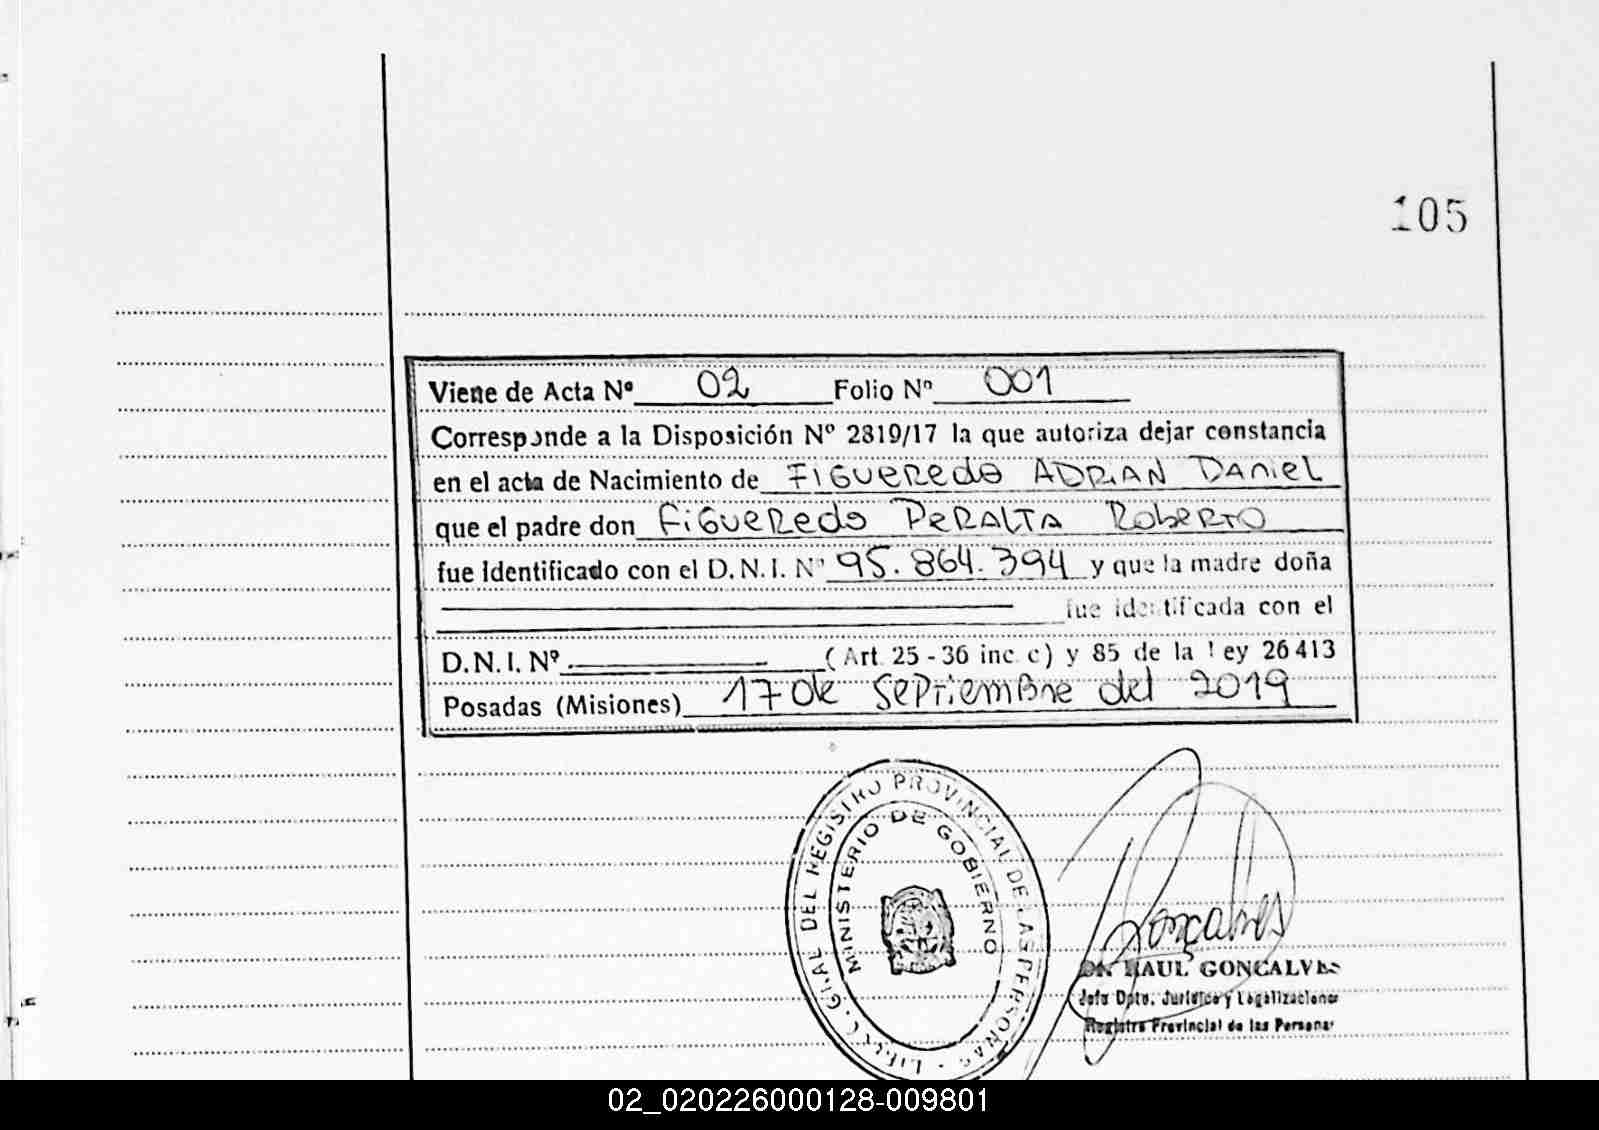 105
Viene de Acta Nº 02 Folio Nº 001
Corresponde a la Disposición Nº 2819/17 la que autoriza dejar constancia
en el acta de Nacimiento de FIGUEREDO ADRIAN DANIEL
que el padre don FIGUEREDO PERALTA ROBERTO
fue identificado con el D.N.I. Nº 95.864.394 y que la madre doña
fue identificada con el
D.N.I. Nº (Art. 25 - 36 inc. c) y 85 de la Ley 26413
Posadas (Misiones) 17 de Septiembre del 2019
GRAL DEL REGISTRO PROVINCIAL DE LAS PERSONAS
MINISTERIO DE GOBIERNO
Gonçalves
DR. RAUL GONCALVES
Jefe Dpto. Jurídico y Legalizaciones
Registro Provincial de las Personas
02_020226000128-009801